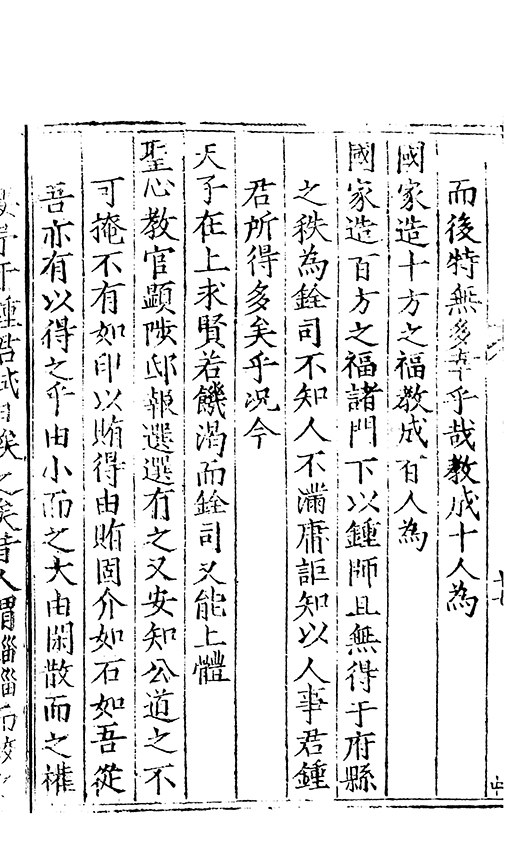 而後特無多幸乎哉教成十人為
國家造十方之福教成百人為
國家造百方之福諸門下以鍾師且無得于府縣
之秩為銓司不知人不滿庸詎知以人事君鍾
君所得多矣乎况今
天子在上求賢若饑渴而銓司又能上體
聖心教官顯陟邸報選選有之又安知公道之不
可掩不有如印以賄得由賄固介如石如吾從
吾亦有以得之乎由小而之大由閑散而之權
鍾君試目俟之矣昔人謂